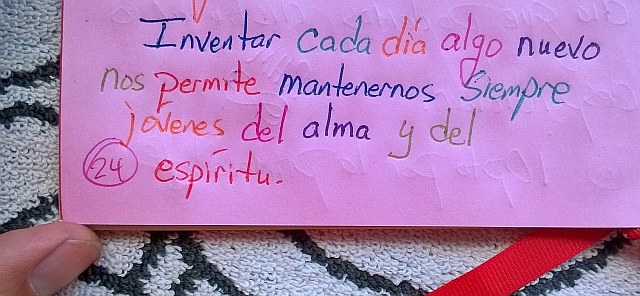 Inventar cada día algo nuevo
nos permite mantenernos siempre
jóvenes del alma y del
24 espíritu.